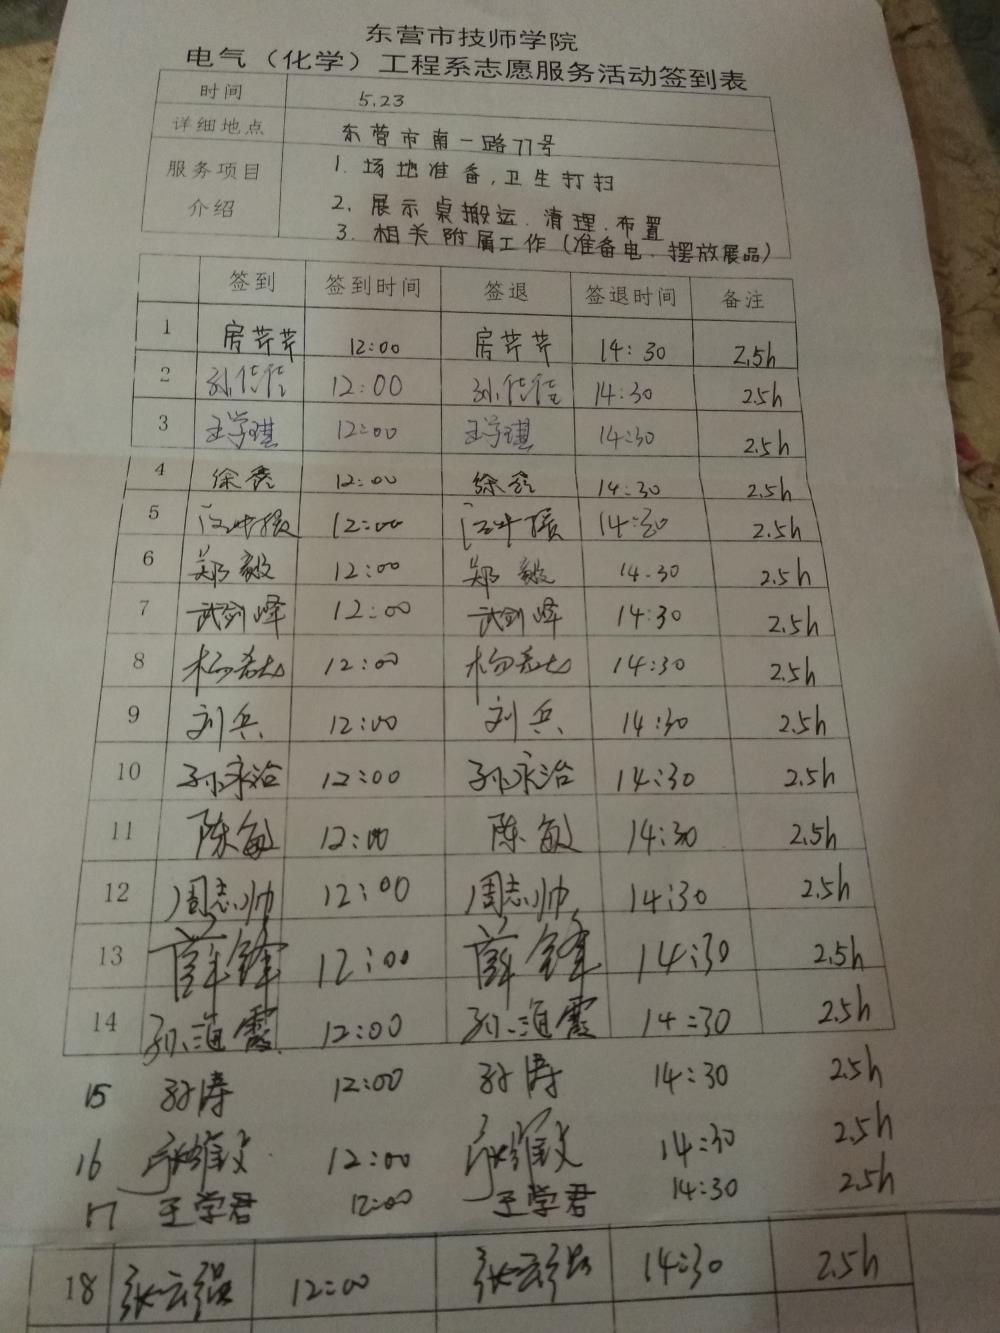 东营市技师学院
电气（化学）工程系志愿服务活动签到表
时间 5.23
详细地点 东营市南一路77号
服务项目介绍 1. 场地准备,卫生打扫
2. 展示桌搬运.清理.布置
3. 相关附属工作(准备电.摆放展品)
签到 签到时间 签退 签退时间 备注
1 房芹芹 12:00 房芹芹 14:30 2.5h
2 孙佳佳 12:00 孙佳佳 14:30 2.5h
3 王学琪 12:00 王学琪 14:30 2.5h
4 徐鑫 12:00 徐鑫 14:30 2.5h
5 12:00 14:30 2.5h
6 郑毅 12:00 郑毅 14.30 2.5h
7 武剑峰 12:00 武剑峰 14:30 2.5h
8 杨 12:00 杨 14:30 2.5h
9 刘兵 12:00 刘兵 14:30 2.5h
10 孙永治 12:00 孙永治 14:30 2.5h
11 陈敏 12:00 陈敏 14:30 2.5h
12 周志帅 12:00 周志帅 14:30 2.5h
13 薛锋 12:00 薛锋 14:30 2.5h
14 孙海霞 12:00 孙海霞 14:30 2.5h
15 孙涛 12:00 孙涛 14:30 2.5h
16 12:00 14:30 2.5h
17 王学君 12:00 王学君 14:30 2.5h
18 张云强 12:00 张云强 14:30 2.5h